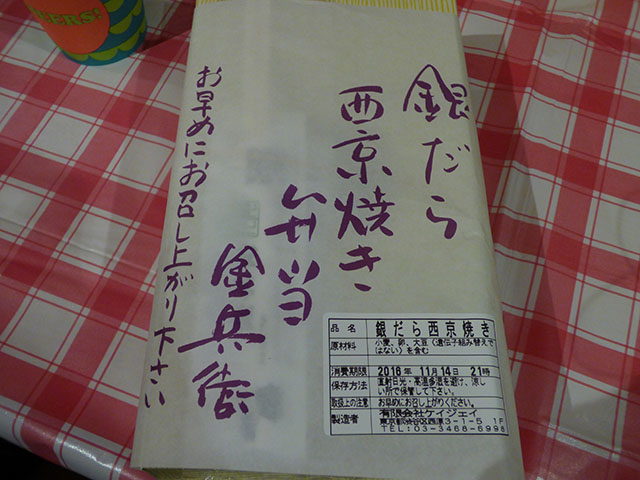 銀だら
西京焼き
弁当
金兵衛
お早めにお召し上がり下さい
品名 銀だら西京焼き
原材料 小麦、卵、大豆(遺伝子組み替えで
はない)を含む
消費期限 2016年 11月14日 21時
保存方法 直射日光・高温多湿を避け、涼し
い所で保管して下さい。
取扱上の注意 お早めにお召し上がりください。
製造者 有限会社ケイジェイ
東京都渋谷区西原3-1-5 1F
TEL:03-3468-6998
BEERS!